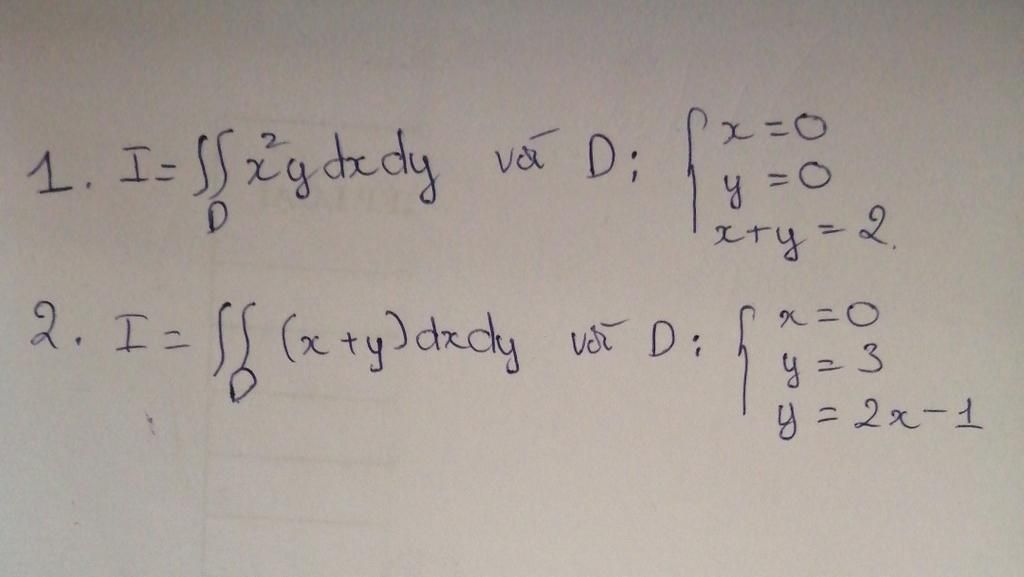 1. I = ∬_D x²y dxdy với D: { x = 0
y = 0
x + y = 2.
2. I = ∬_D (x + y) dxdy với D: { x = 0
y = 3
y = 2x − 1